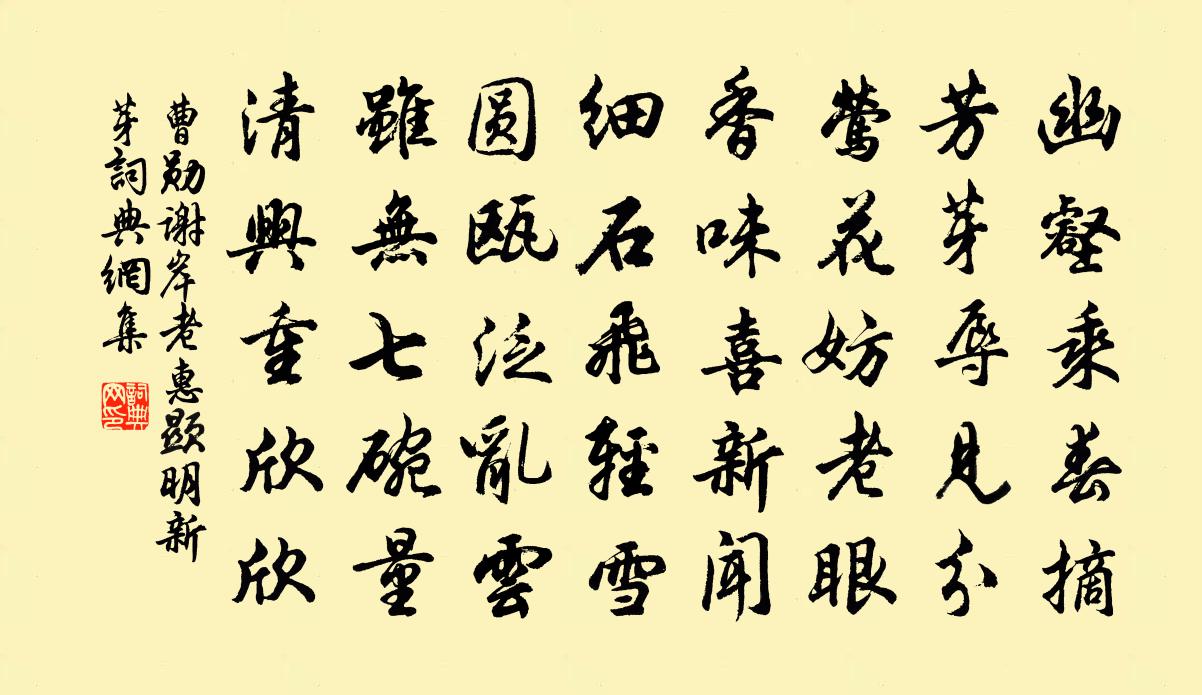 幽壑乘春摘
芳芽辱見分
鶯花妨老眼
香味喜新聞
細石飛輕雪
圓甌泛亂雲
雖無七碗量
清興重欣欣
曹勛謝岸老惠顯明新
芽詞典網集
詞典网印